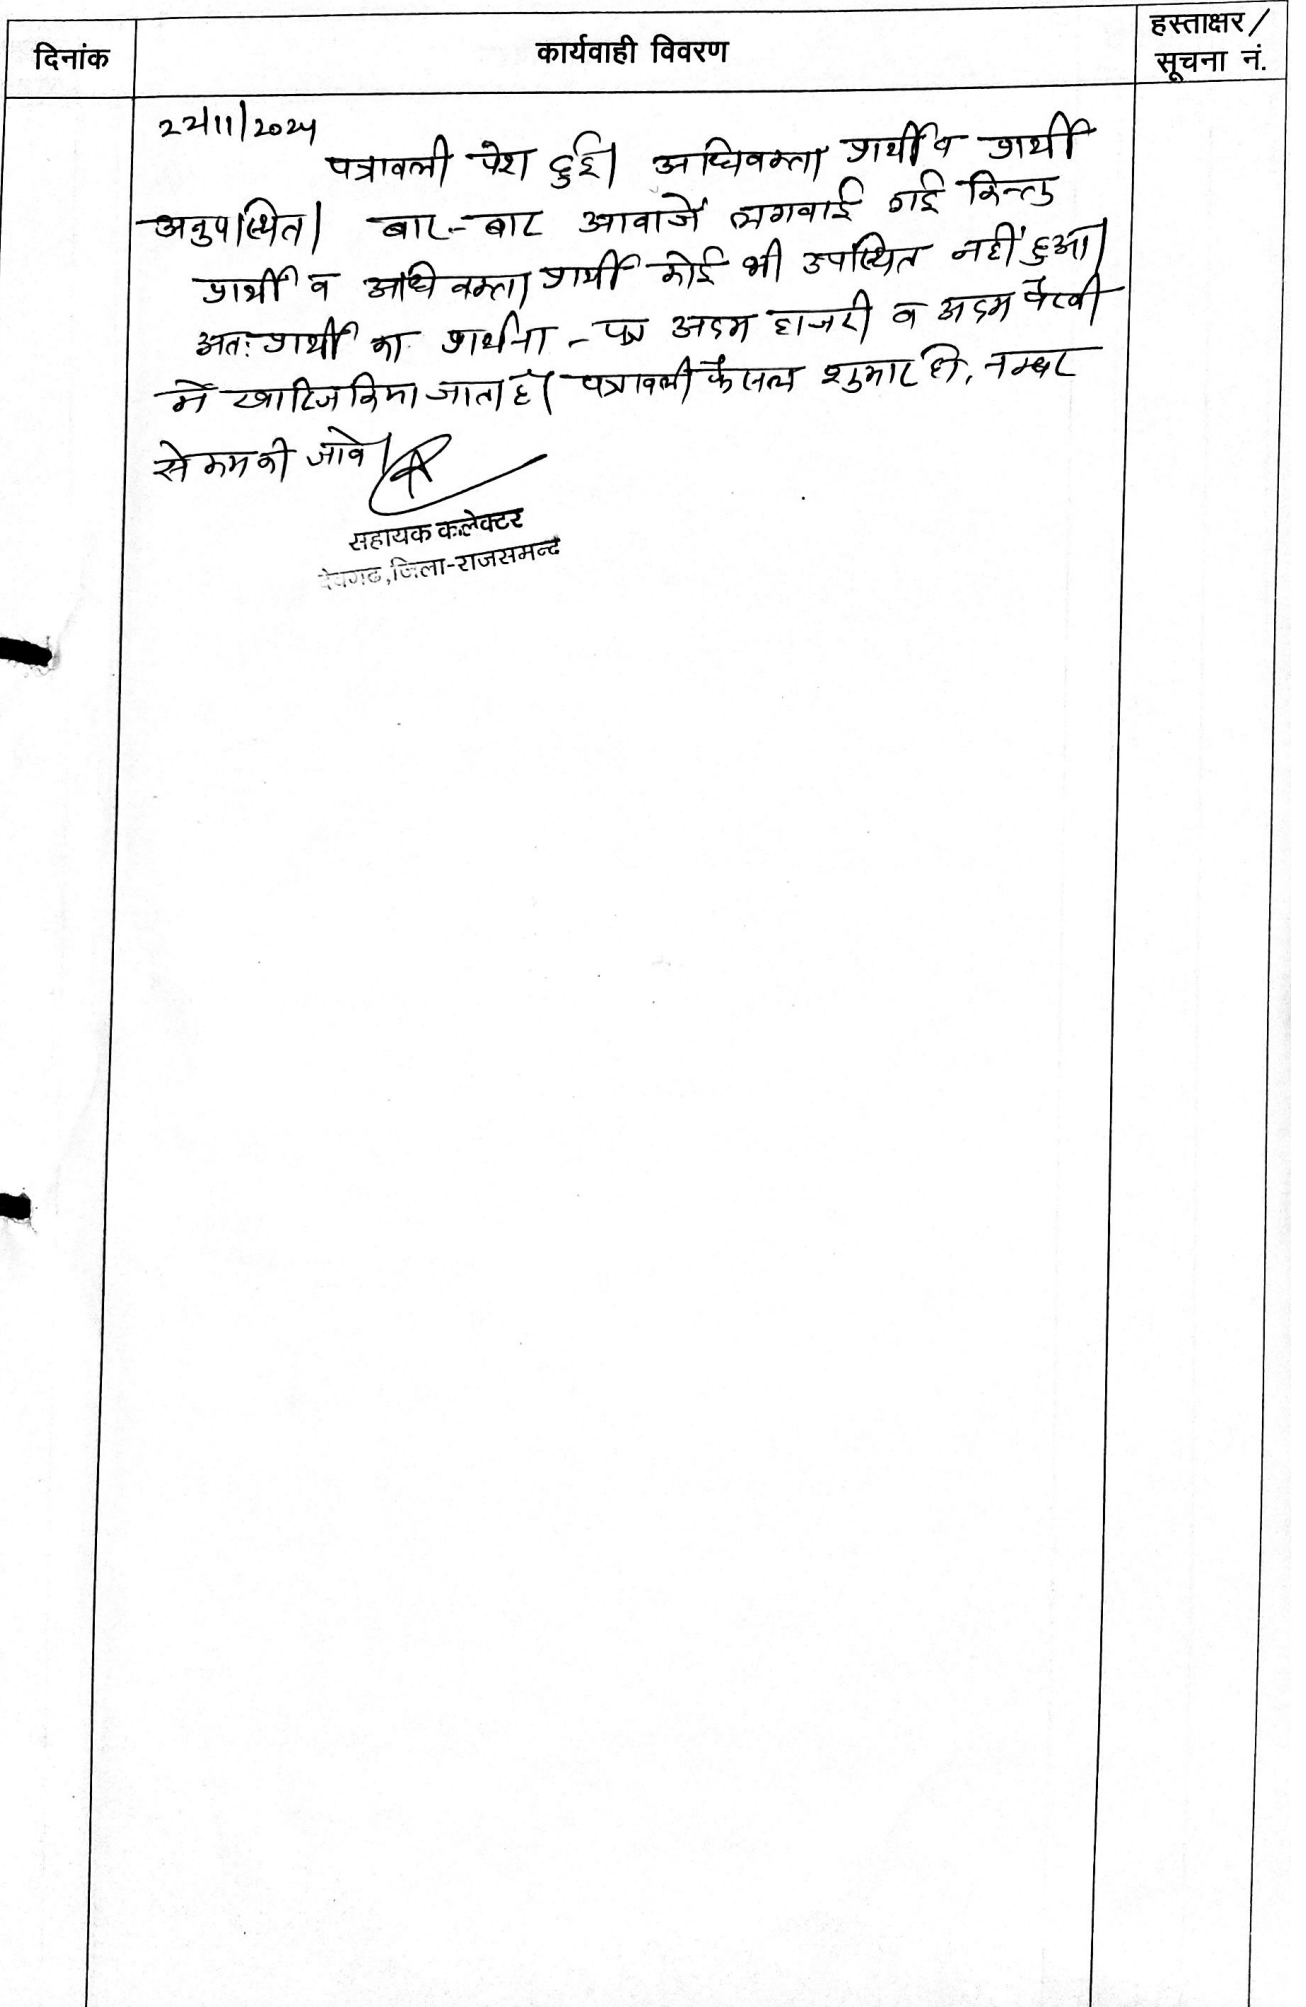 दिनांक
कार्यवाही विवरण
हस्ताक्षर /
सूचना नं.
22/11/2024
पत्रावली पेश हुई। अधिवक्ता प्रार्थी व प्रार्थी
अनुपस्थित। बार-बार आवाजें लगवाई गई किन्तु
प्रार्थी व अधिवक्ता प्रार्थी कोई भी उपस्थित नहीं हुआ।
अतः प्रार्थी का प्रार्थना-पत्र अदम हाजरी व अदम पैरवी
में खारिज किया जाता है। पत्रावली फैसल शुमार हो, नम्बर
से कम की जावे।
सहायक कलेक्टर
देवगढ, जिला-राजसमन्द